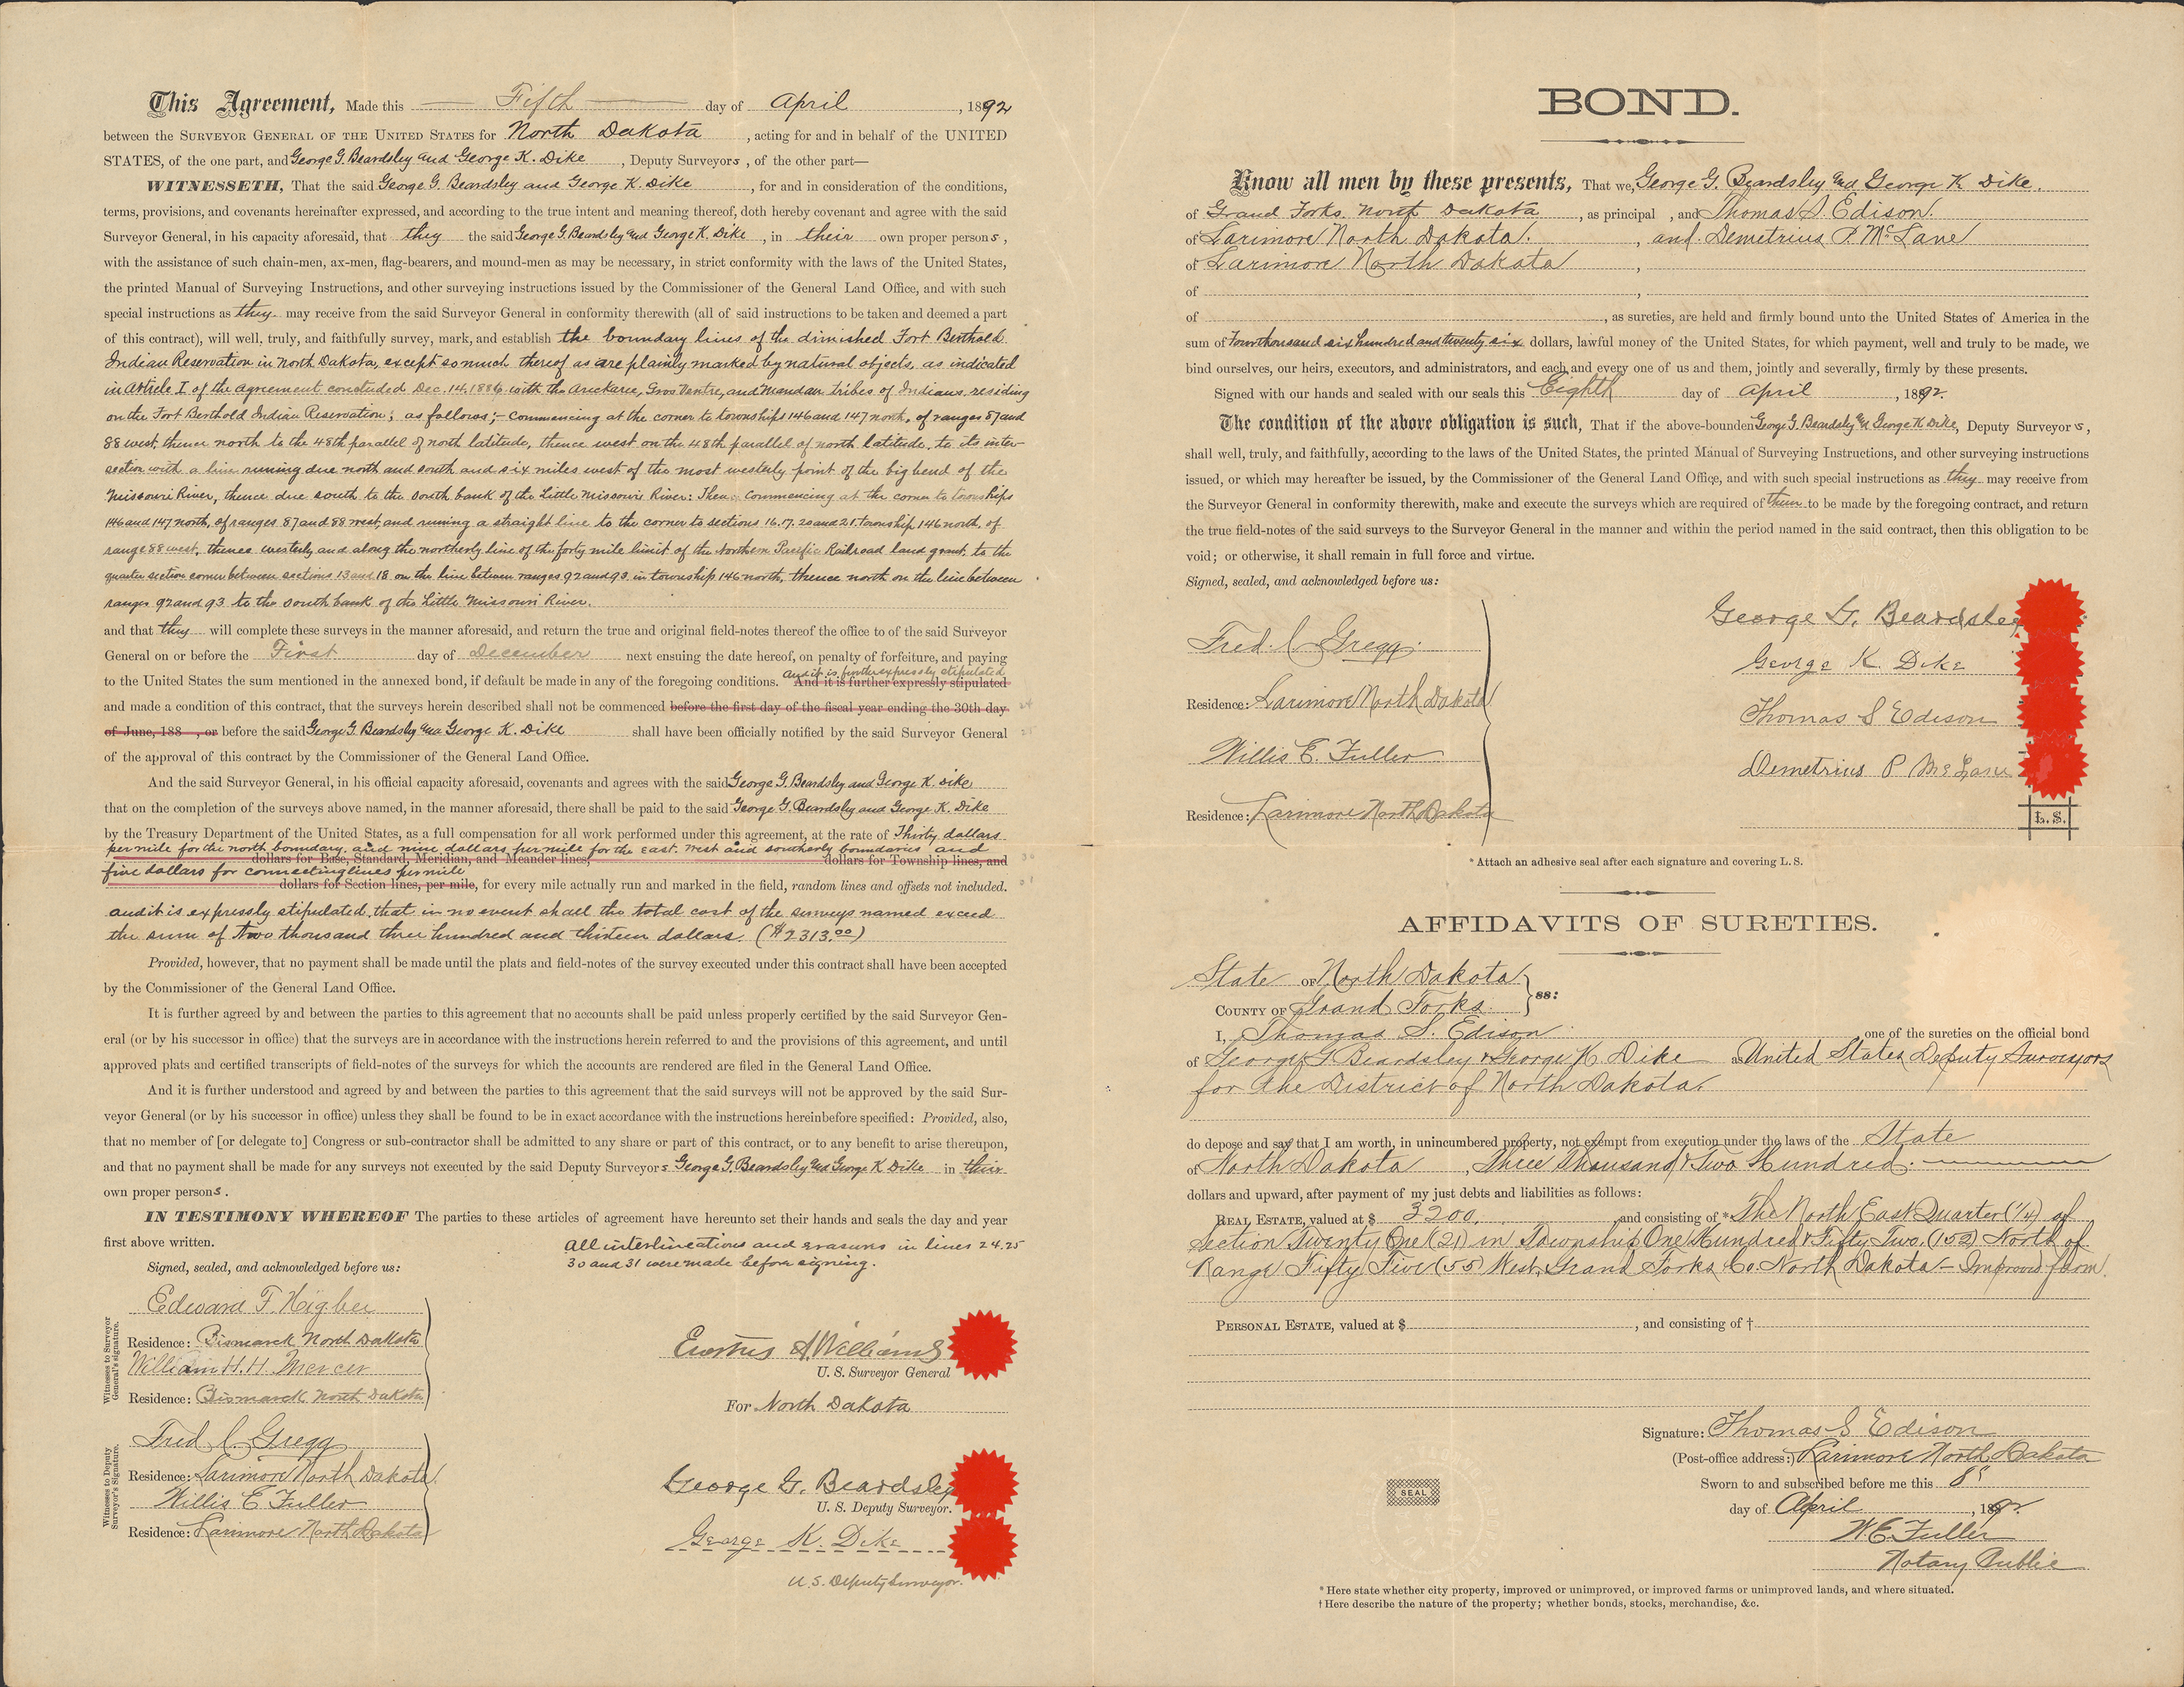 This Agreement, Made this Fifth day of April, 1892
between the SURVEYOR GENERAL OF THE UNITED STATES for North Dakota, acting for and in behalf of the UNITED
STATES, of the one part, and George G. Beardsley and George K. Dike, Deputy Surveyors, of the other part—
WITNESSETH, That the said George G. Beardsley and George K. Dike, for and in consideration of the conditions,
terms, provisions, and covenants hereinafter expressed, and according to the true intent and meaning thereof, doth hereby covenant and agree with the said
Surveyor General, in his capacity aforesaid, that they the said George G. Beardsley and George K. Dike, in their own proper persons,
with the assistance of such chain-men, ax-men, flag-bearers, and mound-men as may be necessary, in strict conformity with the laws of the United States,
the printed Manual of Surveying Instructions, and other surveying instructions issued by the Commissioner of the General Land Office, and with such
special instructions as they may receive from the said Surveyor General in conformity therewith (all of said instructions to be taken and deemed a part
of this contract), will well, truly, and faithfully survey, mark, and establish the boundary lines of the diminished Fort Berthold
Indian Reservation in North Dakota, except so much thereof as are plainly marked by natural objects, as indicated
in Article I of the agreement concluded Dec. 14, 1886 with the Arickaree, Gros Ventre, and Mandan tribes of Indians residing
on the Fort Berthold Indian Reservation; as follows;- Commencing at the corner to townships 146 and 147 north, of ranges 87 and
88 west, thence north to the 48th parallel of north latitude, thence west on the 48th parallel of north latitude, to its inter-
section with a line runing due north and south and six miles west of the most westerly point of the big bend of the
Missouri River, thence due south to the south bank of the Little Missouri River: Then: Commencing at the corner to townships
146 and 147 north, of ranges 87 and 88 west, and runing a straight line to the corner to sections 16.17.20 and 21. township, 146 north, of
range 88 west, thence westerly and along the northerly line of the forty mile limit of the Northern Pacific Railroad land grant, to the
quarter section corner between sections 13 and 18 on the line between ranges 92 and 93 in township 146 north, thence north on the line between
ranges 92 and 93 to the south bank of the Little Missouri River.
and that they will complete these surveys in the manner aforesaid, and return the true and original field-notes thereof the office to of the said Surveyor
General on or before the First day of December next ensuing the date hereof, on penalty of forfeiture, and paying
And it is further expressly stipulated
to the United States the sum mentioned in the annexed bond, if default be made in any of the foregoing conditions. And it is further expressly stipulated
and made a condition of this contract, that the surveys herein described shall not be commenced before the first day of the fiscal year ending the 30th day 24
of June, 188 , or before the said George G. Beardsley and George K. Dike shall have been officially notified by the said Surveyor General 25
of the approval of this contract by the Commissioner of the General Land Office.
And the said Surveyor General, in his official capacity aforesaid, covenants and agrees with the said George G. Beardsley and George K. Dike
that on the completion of the surveys above named, in the manner aforesaid, there shall be paid to the said George G. Beardsley and George K. Dike
by the Treasury Department of the United States, as a full compensation for all work performed under this agreement, at the rate of Thirty dollars
per mile for the north boundary. and nine dollars per mile for the east. west and southerly boundaries and
dollars for Base, Standard, Meridian, and Meander lines; dollars for Township lines, and 30
five dollars for connecting lines per mile
dollars for Section lines, per mile, for every mile actually run and marked in the field, random lines and offsets not included. 31
and it is expressly stipulated, that in no event shall the total cost of the surveys named exceed
the sum of Two thousand three hundred and thirteen dollars. ($2313.00)
Provided, however, that no payment shall be made until the plats and field-notes of the survey executed under this contract shall have been accepted
by the Commissioner of the General Land Office.
It is further agreed by and between the parties to this agreement that no accounts shall be paid unless properly certified by the said Surveyor Gen-
eral (or by his successor in office) that the surveys are in accordance with the instructions herein referred to and the provisions of this agreement, and until
approved plats and certified transcripts of field-notes of the surveys for which the accounts are rendered are filed in the General Land Office.
And it is further understood and agreed by and between the parties to this agreement that the said surveys will not be approved by the said Sur-
veyor General (or by his successor in office) unless they shall be found to be in exact accordance with the instructions hereinbefore specified: Provided, also,
that no member of [or delegate to] Congress or sub-contractor shall be admitted to any share or part of this contract, or to any benefit to arise thereupon,
and that no payment shall be made for any surveys not executed by the said Deputy Surveyors George G. Beardsley and George K Dike in their
own proper persons.
IN TESTIMONY WHEREOF The parties to these articles of agreement have hereunto set their hands and seals the day and year
first above written.
All interlineations and erasures in lines 24.25
30 and 31 were made before signing.
Signed, sealed, and acknowledged before us:
Witnesses to Surveyor General's signature.
Edward F. Higbee
Residence: Bismarck North Dakota
William H. H. Mercer
Residence: Bismarck North Dakota
Erastus A. Williams
U. S. Surveyor General
For North Dakota
Witnesses to Deputy Surveyor's Signature.
Fred. C. Gregg
Residence: Larimore North Dakota
Willis E. Fuller
Residence: Larimore North Dakota
George G. Beardsley
U. S. Deputy Surveyor.
George K. Dike
U.S. Deputy Surveyor.
BOND.
Know all men by these presents, That we, George G. Beardsley and George K Dike.
of Grand Forks. North Dakota, as principal , and Thomas S. Edison.
of Larimore North Dakota. , and. Demetrius P. McLane
of Larimore North Dakota ,
of ,
of , as sureties, are held and firmly bound unto the United States of America in the
sum of four thousand six hundred and twenty six dollars, lawful money of the United States, for which payment, well and truly to be made, we
bind ourselves, our heirs, executors, and administrators, and each and every one of us and them, jointly and severally, firmly by these presents.
Signed with our hands and sealed with our seals this Eighth day of April, 1892.
The condition of the above obligation is such, That if the above-bounden George G. Beardsley and George K Dike, Deputy Surveyors,
shall well, truly, and faithfully, according to the laws of the United States, the printed Manual of Surveying Instructions, and other surveying instructions
issued, or which may hereafter be issued, by the Commissioner of the General Land Office, and with such special instructions as they may receive from
the Surveyor General in conformity therewith, make and execute the surveys which are required of them to be made by the foregoing contract, and return
the true field-notes of the said surveys to the Surveyor General in the manner and within the period named in the said contract, then this obligation to be
void; or otherwise, it shall remain in full force and virtue.
Signed, sealed, and acknowledged before us:
Fred. C Gregg.
Residence: Larimore North Dakota
Willis E. Fuller
Residence: Larimore North Dakota
George G. Beardsley
George K. Dike
Thomas S Edison
Demetrius P McLane
L. S.
* Attach an adhesive seal after each signature and covering L. S.
AFFIDAVITS OF SURETIES.
State OF North Dakota
COUNTY OF Grand Forks. } ss:
I, Thomas S. Edison one of the sureties on the official bond
of George G Beardsley & George K. Dike a United States Deputy Surveyors
for the District of North Dakota.
do depose and say that I am worth, in unincumbered property, not exempt from execution under the laws of the State
of North Dakota , Three Thousand & Two Hundred.
dollars and upward, after payment of my just debts and liabilities as follows:
REAL ESTATE, valued at $ 3200. and consisting of * The North East Quarter (1/4) of
Section Twenty One (21) in Township One Hundred & Fifty Two. (152) North of
Range Fifty Five (55) West, Grand Forks Co. North Dakota - Improved farm.
PERSONAL ESTATE, valued at $ , and consisting of †
Signature: Thomas S Edison
(Post-office address:) Larimore North Dakota
Sworn to and subscribed before me this 8"
day of April, 1892.
W. E. Fuller
Notary Public
SEAL
* Here state whether city property, improved or unimproved, or improved farms or unimproved lands, and where situated.
† Here describe the nature of the property; whether bonds, stocks, merchandise, &c.